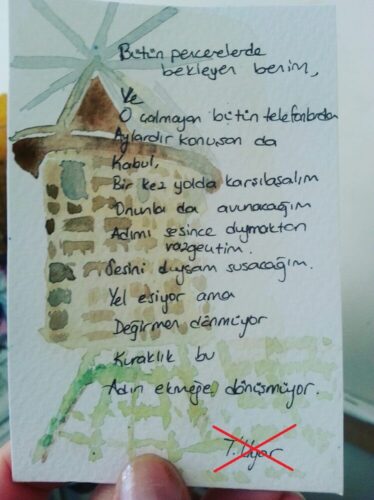 Bütün pencerelerde
bekleyen benim,
Ve
O çalmayan bütün telefonlardan
Aylardır konuşan da
Kabul,
Bir kez yolda karşılaşalım
Onunla da avunacağım
Adımı sesince duymaktan
vazgeçtim.
Sesini duysam susacağım.
Yel esiyor ama
Değirmen dönmüyor
Kuraklık bu
Adın ekmeğe dönüşmüyor.
T. Uyar